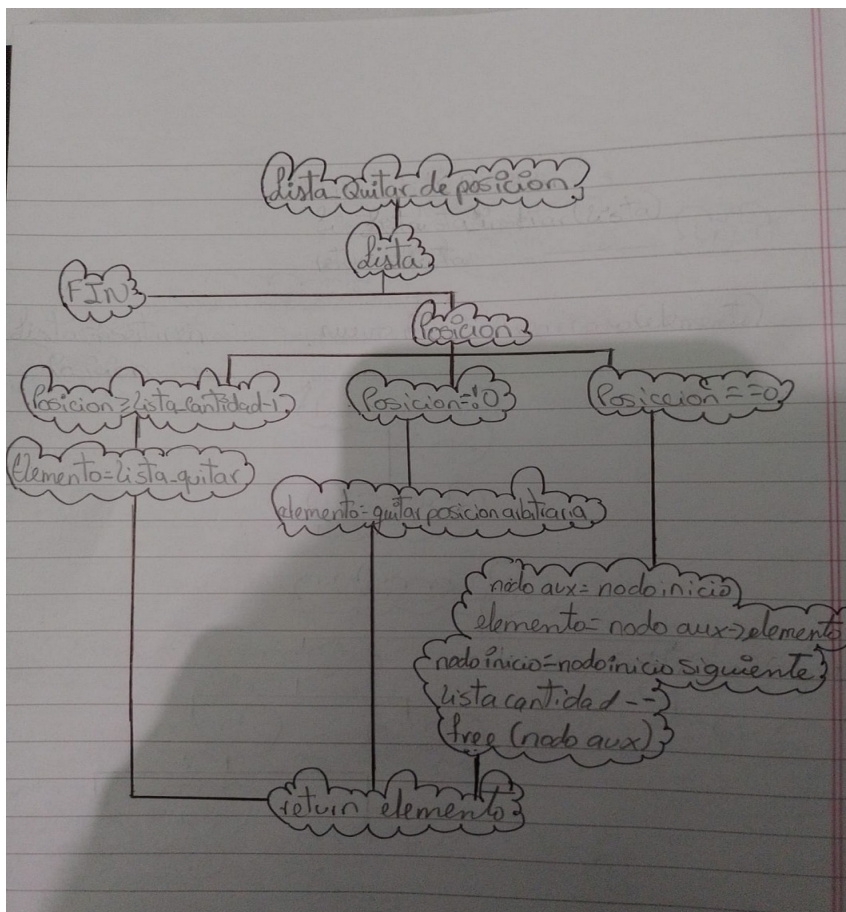 Lista_Quitar_de posicion
Lista
FIN
Posicion
Posicion ≥ lista_cantidad-1
Posicion=!0
Posiccion==0
Elemento=lista_quitar
elemento=quitar posicion arbitiaria
nodo aux = nodo inicio
elemento = nodo aux->elemento
nodo inicio=nodo inicio siguiente
Lista cantidad --
free (nodo aux)
return elemento